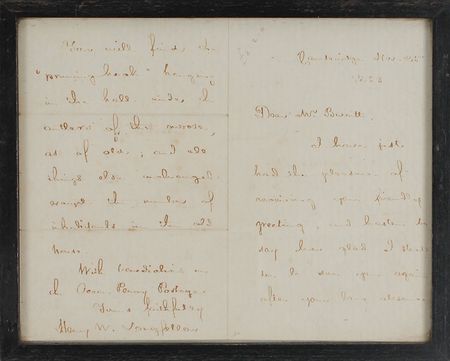 Cambridge Nov
Dear Mr Burritt,
I have just
had the pleasure of
receiving your friendly
greeting, and hasten to
say how glad I shall
be to see you again
after your long absence.
You will find the
"pruning hook" hanging
in the hall under the
antlers of the moose,
as of old; and all
things else unchanged
except the number of
inhabitants in the old
house.
With benedictions on
the Ocean Penny Postage
Yours faithfully
Henry W. Longfellow